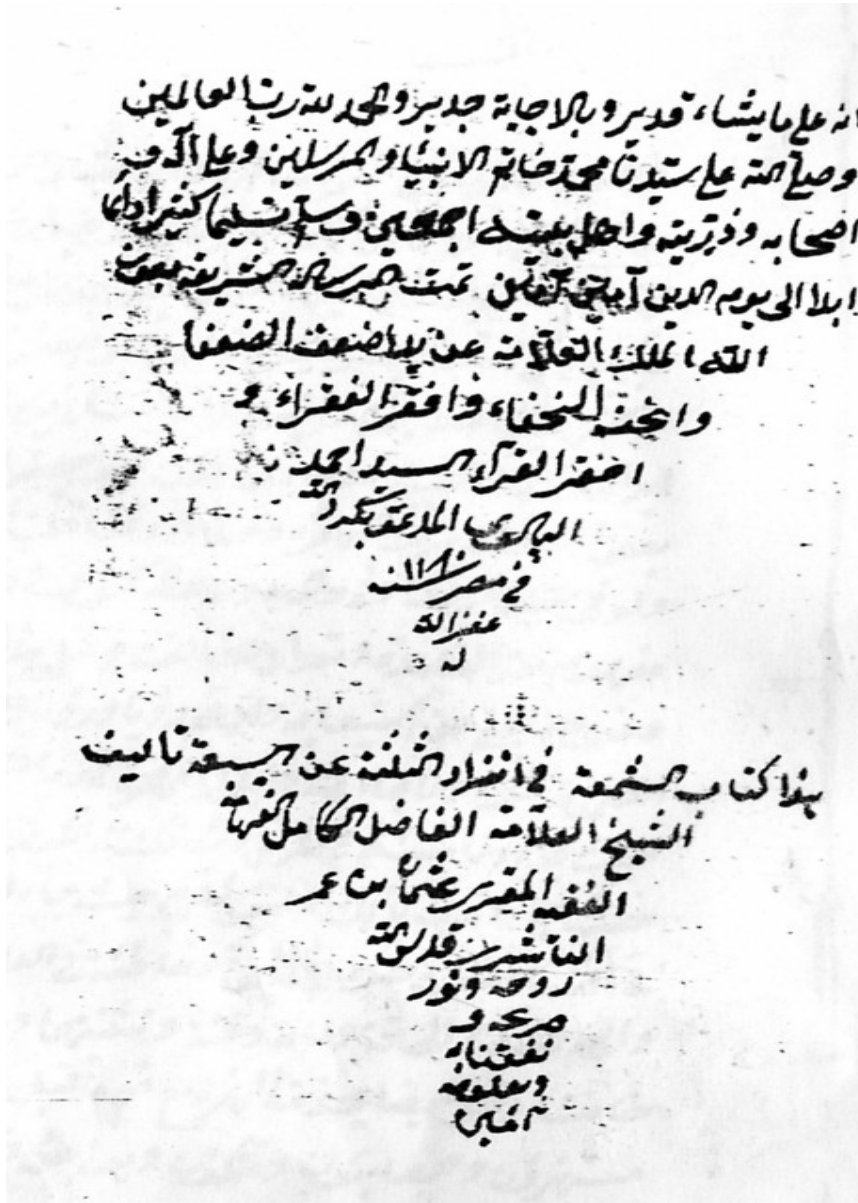 انه على ما يشاء قدير وبالاجابة جدير والحمد لله رب العالمين
وصلى الله على سيدنا محمد خاتم الانبياء والمرسلين وعلى آله و
اصحابه وذريته واهل بيته اجمعين وسلم تسليما كثيرا دائما
ابدا الى يوم الدين آمين آمين تمت الرسالة الشريفة بعون
الله الملك العلامة عن يد اضعف الضعفا
وانحف النحفاء وافقر الفقراء و
احقر القراء السيد احمد
في مصر سنة ١١٨٠
غفر الله
له
هذا كتاب الشمعة في انفراد الثلثة عن السبعة تاليف
الشيخ العلامة الفاضل الكامل الفهامة
الفقيه المقرى عثمان بن عمر
الناشرى قدس الله
روحه ونور
ضريحه و
نفعنا به
وبعلومه
آمين